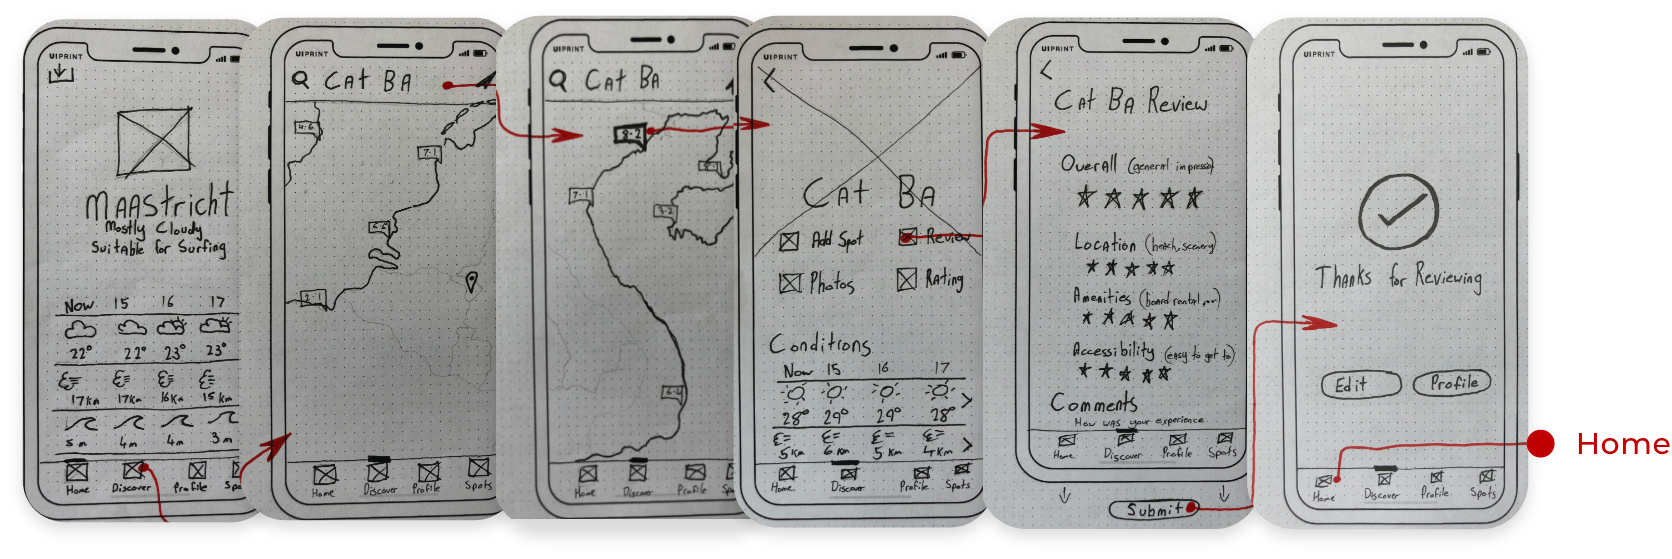 UIPRINT
MAAStricht
Mostly Cloudy
Suitable for Surfing
Now 15 16 17
22° 22° 23° 23°
17km 17km 16km 15km
5m 4m 4m 3m
Home Discover Profile
UIPRINT
Cat BA
4.6
7.1
Home Discover Profile Spots
UIPRINT
Cat BA
8.2
7.1
3.2
6.4
Home Discover Profile
UIPRINT
Cat BA
Add Spot Review
Photos Rating
Conditions
Now 15 16 17
28° 29° 29° 28°
5km 6km 5km 4km
Home Discover Profile Spots
UIPRINT
Cat BA Review
Overall (general impression)
Location (beach, scenery)
Amenities (board rental,
Accessibility (easy to get to)
Comments
How was your experience
Home Discover Profile Spots
Submit
UIPRINT
Thanks for Reviewing
Edit Profile
Home Discover Profile Spots
Home